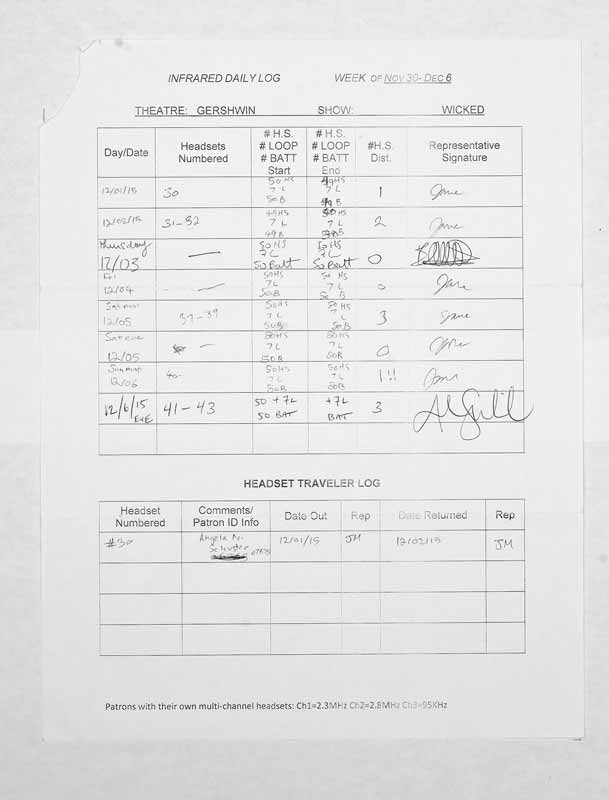 INFRARED DAILY LOG WEEK OF NOV 30- DEC 6
THEATRE: GERSHWIN SHOW: WICKED
Day/Date Headsets Numbered # H.S. # LOOP # BATT Start # H.S. # LOOP # BATT End #H.S. Dist. Representative Signature
12/01/15 30 50HS 7L 50B 49HS 7L 49B 1 Jane
12/02/15 31-32 49HS 7L 49B 50HS 7L 50B 2 Jane
Thursday 12/03 — 50HS 7L 50Batt 50HS 7L 50Batt 0
Fri 12/04 - — 50HS 7L 50B 50 HS 7L 50 B 0 Jane
12/05 37-39 50HS 7L 50B 50HS 7L 50B 3 Jane
Sat eve 12/05 — 50HS 7L 50B 50HS 7L 50B 0 Jane
Sunday 12/06 40 50HS 7L 50B 50HS 7L 50B 1!! Jane
12/6/15 EVE 41-43 50 +7L 50 BAT +7L BAT 3
HEADSET TRAVELER LOG
Headset Numbered Comments/ Patron ID Info Date Out Rep Date Returned Rep
#30 Angela N. 12/01/15 JM 12/02/15 JM
Patrons with their own multi-channel headsets: Ch1=2.3MHz Ch2=2.8MHz Ch3=95KHz